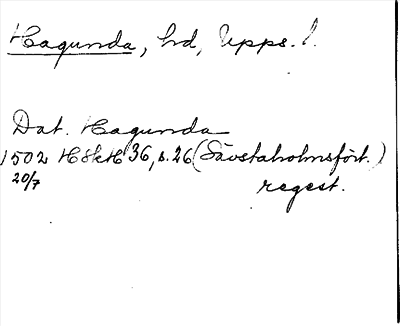 Hagunda, hd, Upps. l.
Dat. Hagunda
1502 HSkH 36, s. 26 (Sävstaholmsfört.)
20/7 regest.